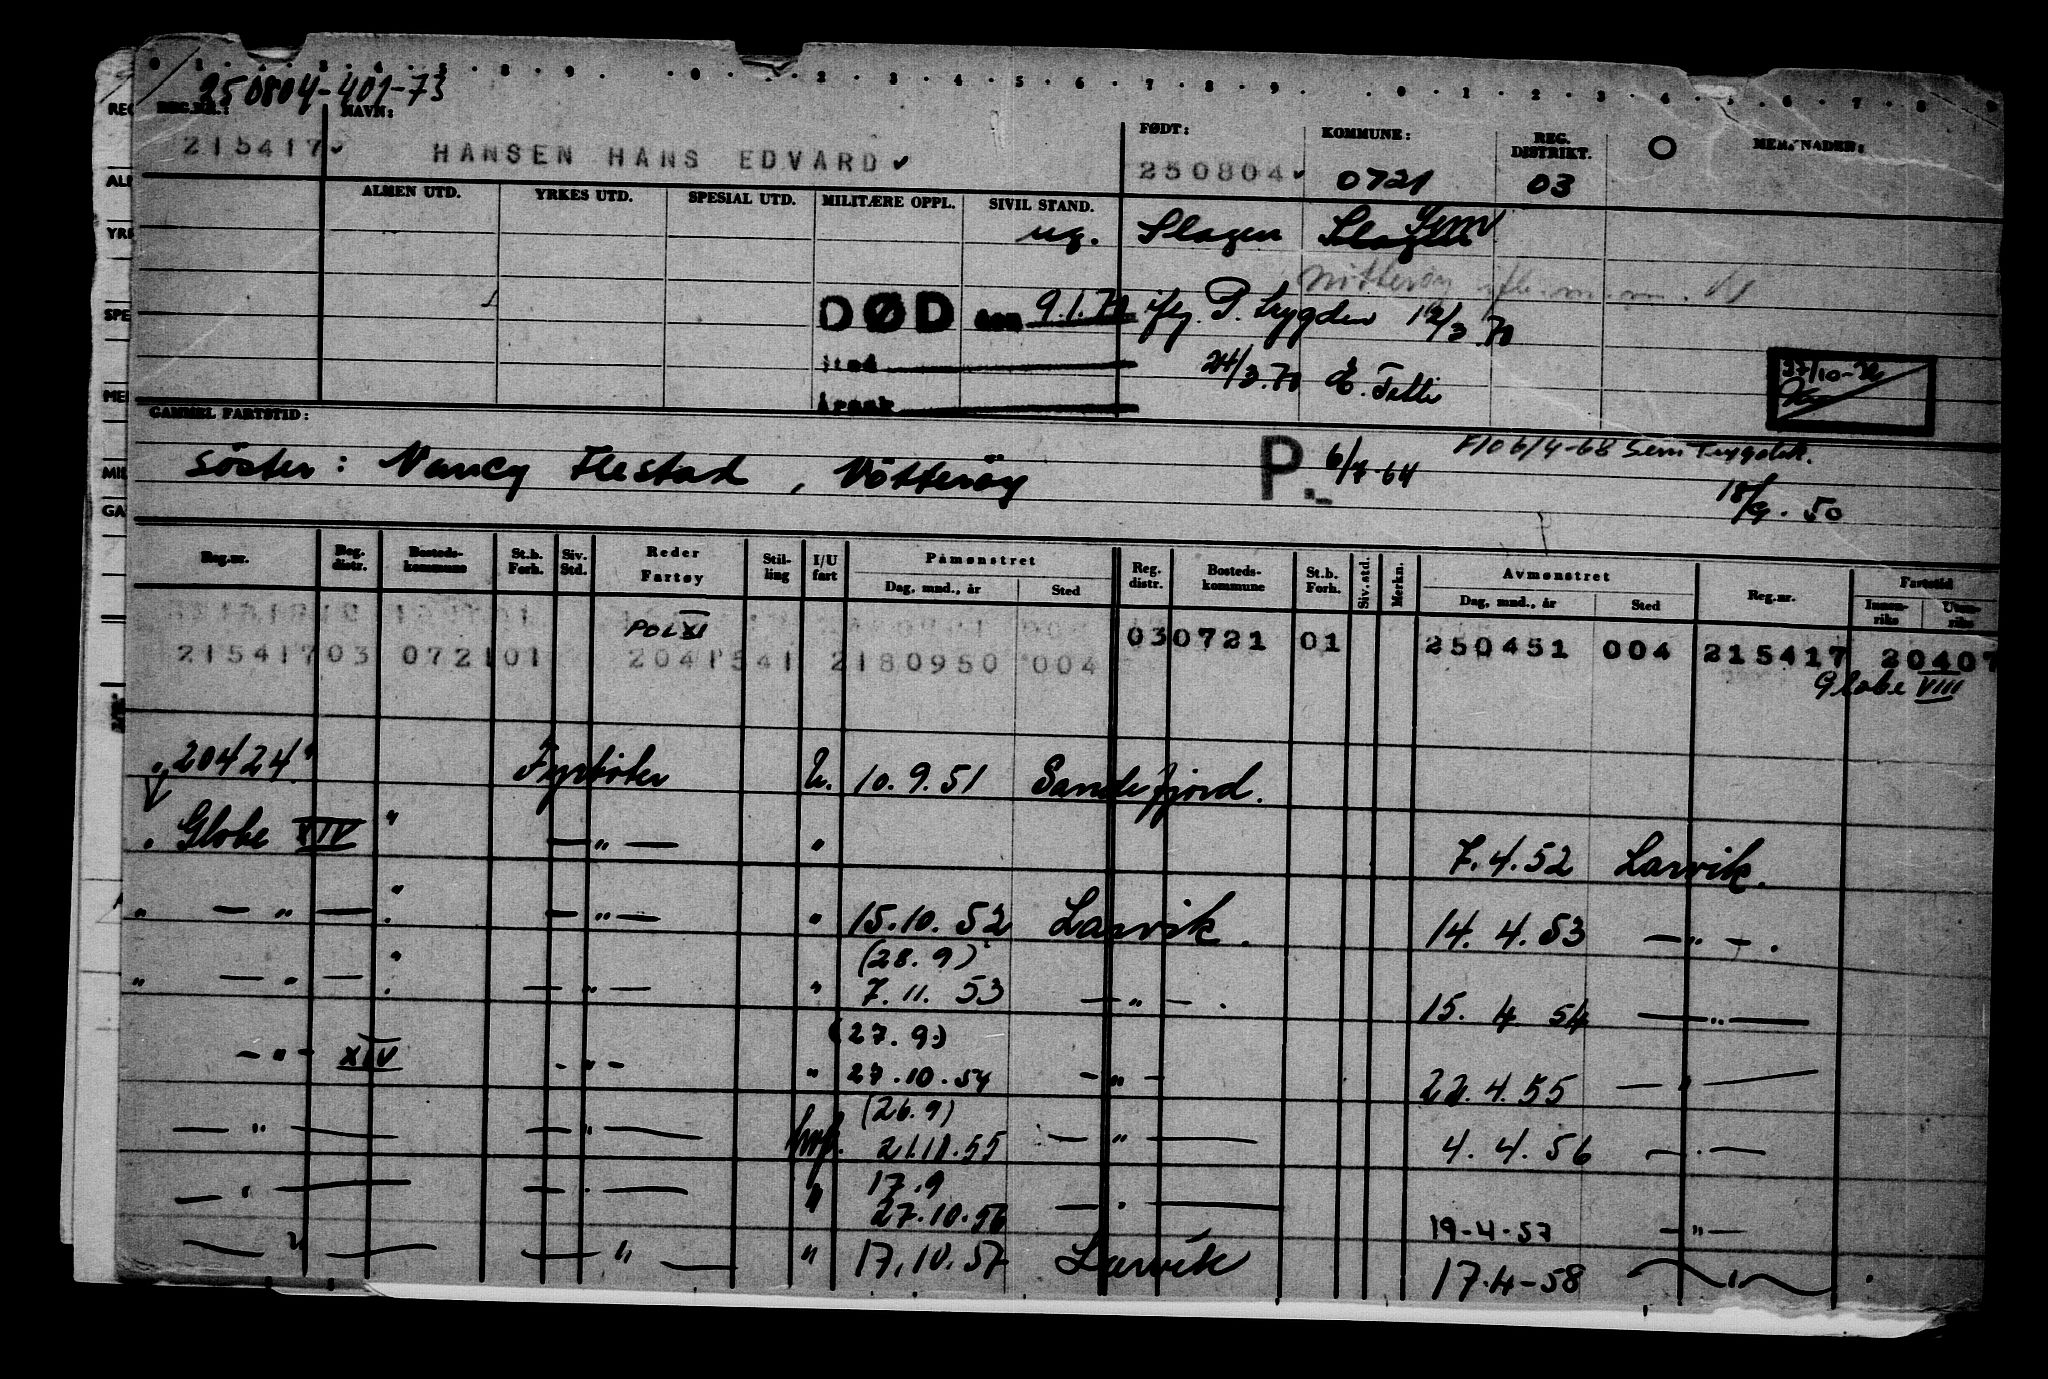 250804-401-73
REG.NR.: NAVN: FØDT: KOMMUNE: REG. DISTRIKT. MERKNADER:
215417 HANSEN HANS EDVARD 250804 0721 03
ALMEN UTD. YRKES UTD. SPESIAL UTD. MILITÆRE OPPL. SIVIL STAND.
ug. Slagen Slagen Sem
Nøtterøy
DØD den 9.1.70 iflg. P. Trygden 12/3.70
Sted
24/3.70
Årsak
27/10-72
GAMMEL FARTSTID:
F10 6/4-68 Sem Trygdek.
Söster: Nancy Flestad, Nøtterøy P. 6/7-64
18/9.50
Reg.nr. Reg. distr. Bosteds-kommune St.b. Forh. Siv. Std. Reder Fartøy Stil-ling I/U fart Påmønstret Reg. distr. Bosteds-kommune St.b. Forh. Siv.std. Merkn. Avmønstret Reg.nr. Fartstid
Dag, mnd., år Sted Dag, mnd., år Sted Innen-riks Uten-riks
POL XI
215417 03 0721 01 2041541 2180950 004 03 0721 01 250451 004 215417 20407
Globe VIII
20424 Fyrböter U. 10.9.51 Sandefjord.
Globe XIV " — " — " 7.4.52 Larvik.
" — " — " — " — " 15.10.52 Larvik. 14.4.53 — " — .
(28.9)
" — " — " — " — " 7.11.53 — " — . 15.4.54 — " —
(27.9)
— " — XIV — " — " 27.10.54 — " — 22.4.55 — " —
(26.9)
— " — — " — 21.10.55 — " — 4.4.56 — " —
17.9
— " — — " — " 27.10.56 — " — 19-4-57 — " —
— " — — " — " 17.10.57 Larvik 17-4-58 — " —